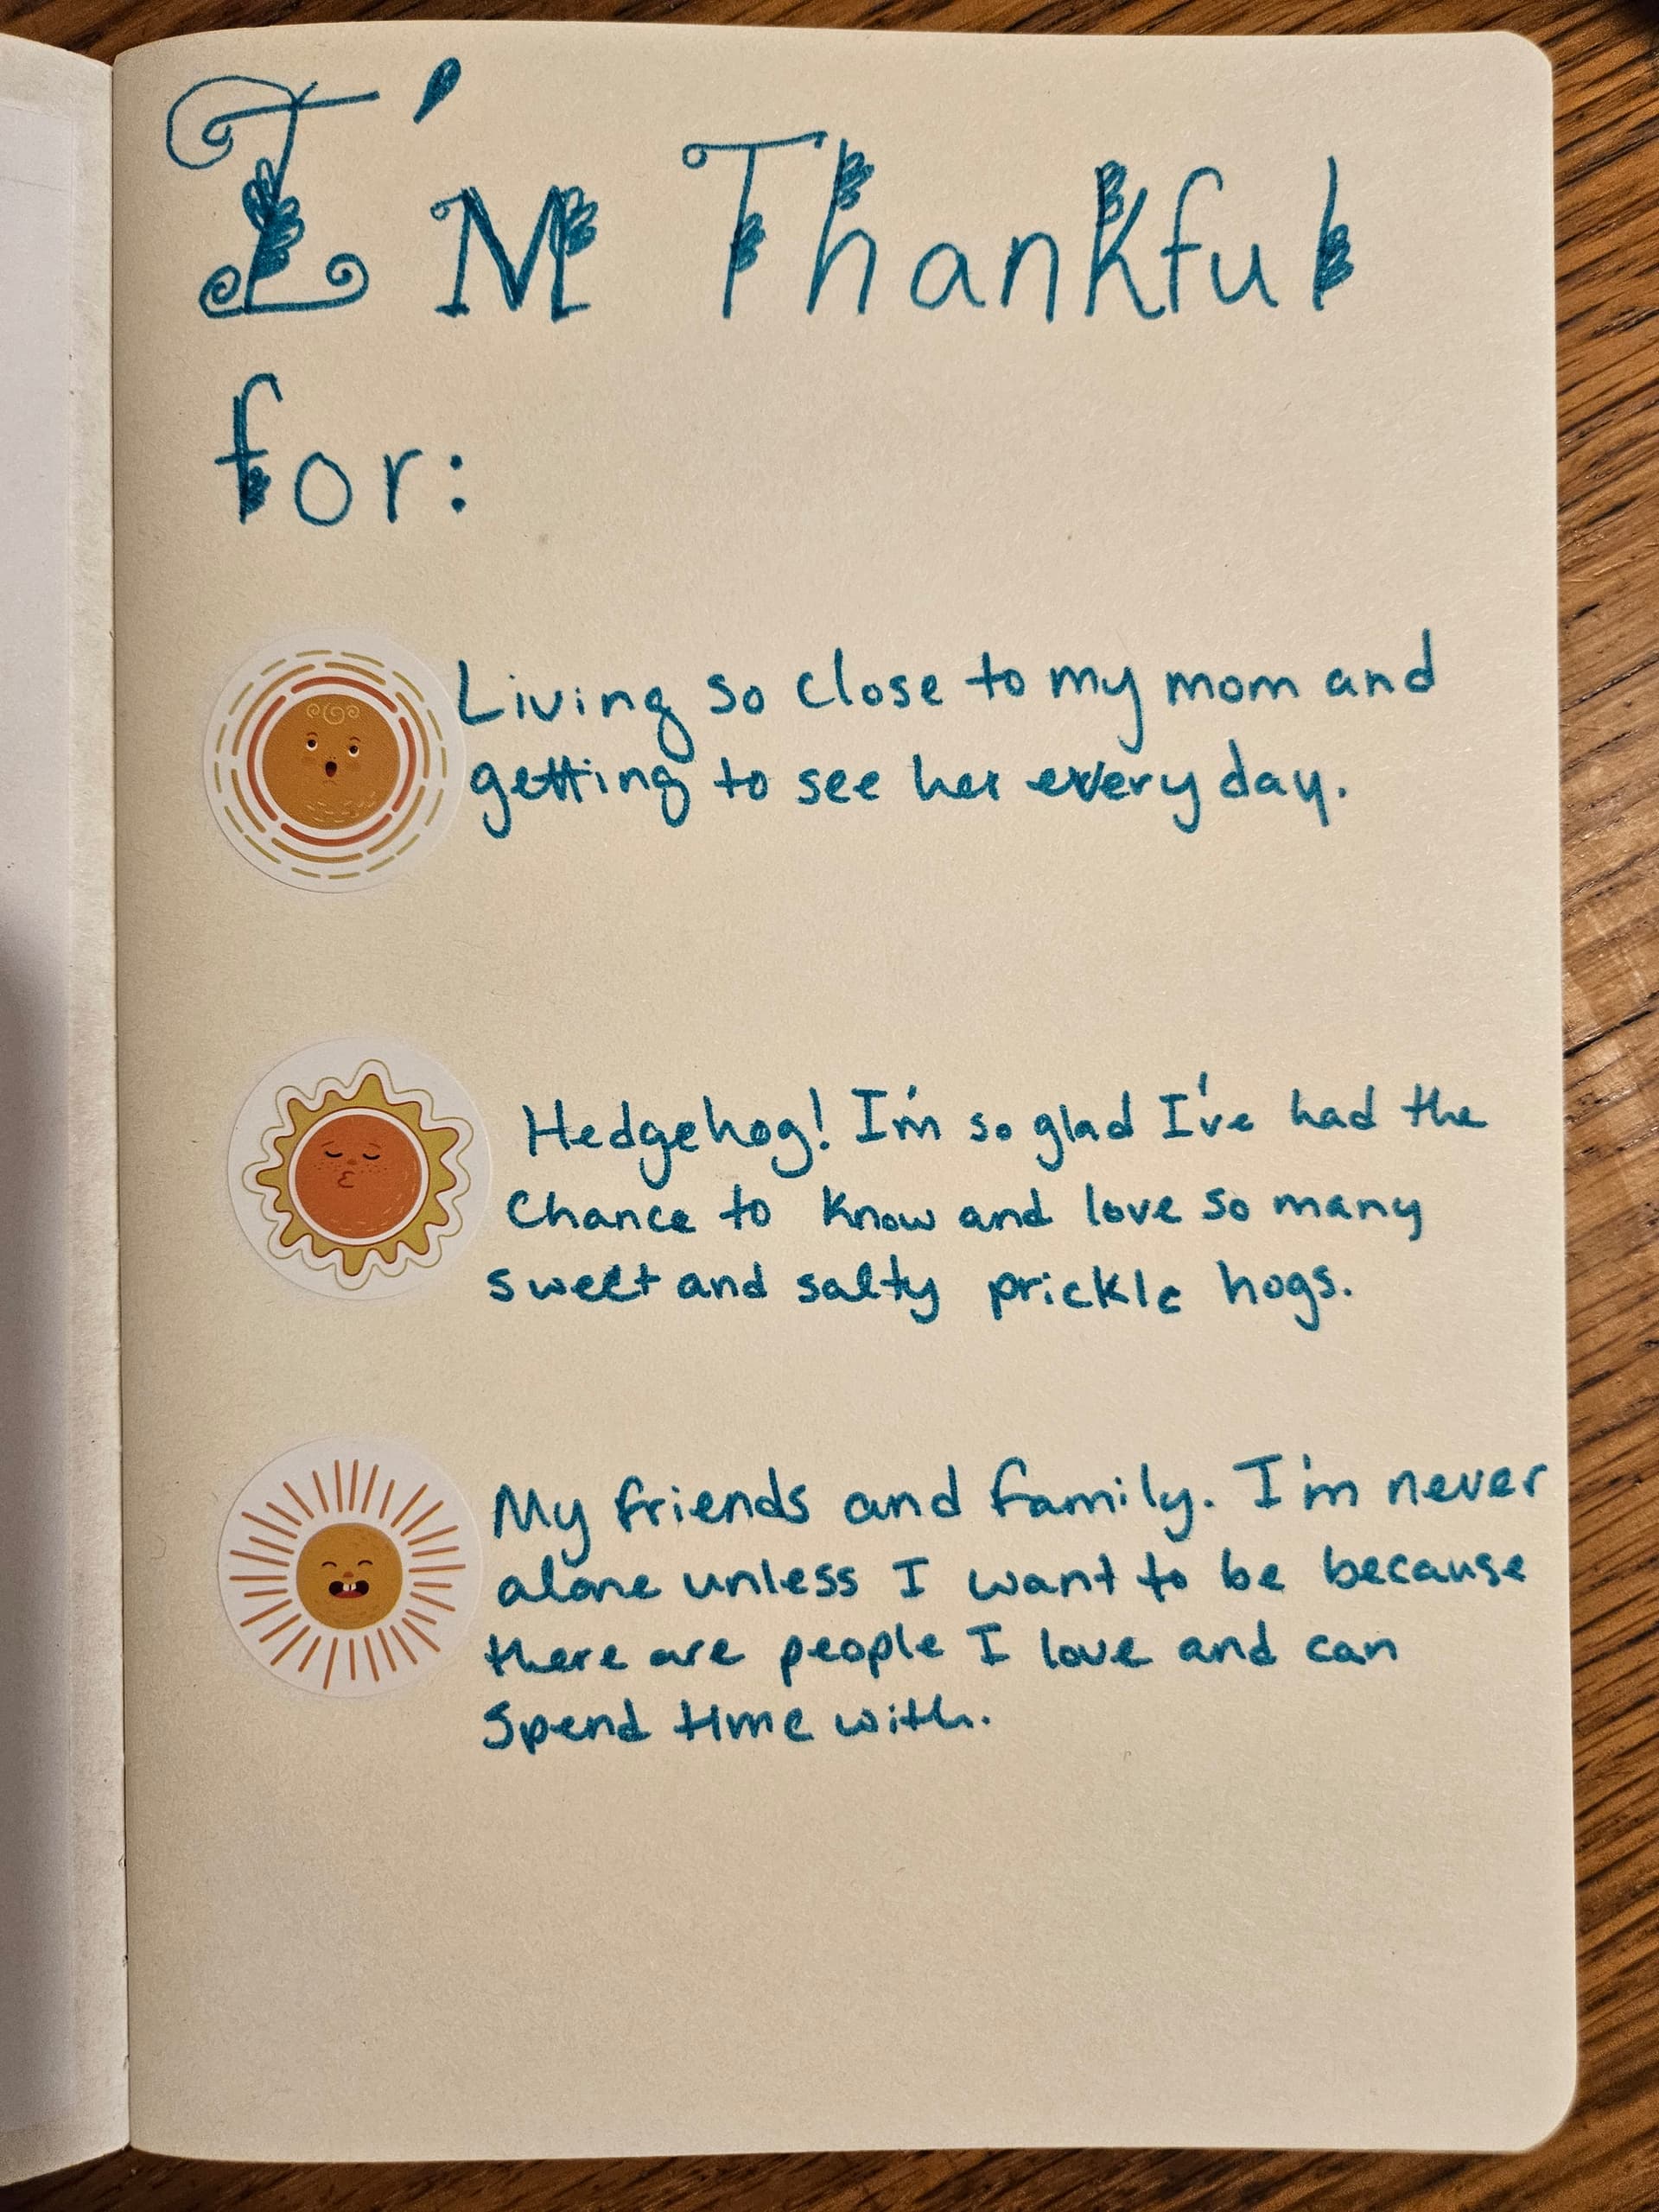 I'M Thankful
for:
Living so close to my mom and
getting to see her every day.
Hedgehog! I'm so glad I've had the
Chance to know and love so many
sweet and salty prickle hogs.
My friends and family. I'm never
alone unless I want to be because
there are people I love and can
Spend time with.